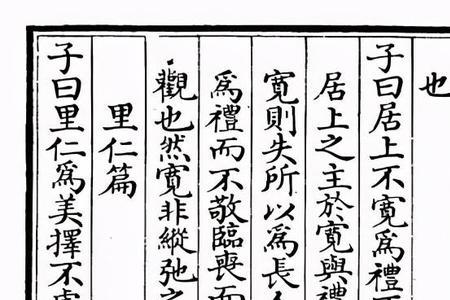 也
子曰居上不寬爲禮不
居上之主於寬與禮
寬則失所以爲長人
爲禮而不敬臨喪而
觀也然寬非縱弛之
里仁篇
子曰里仁爲美擇不處